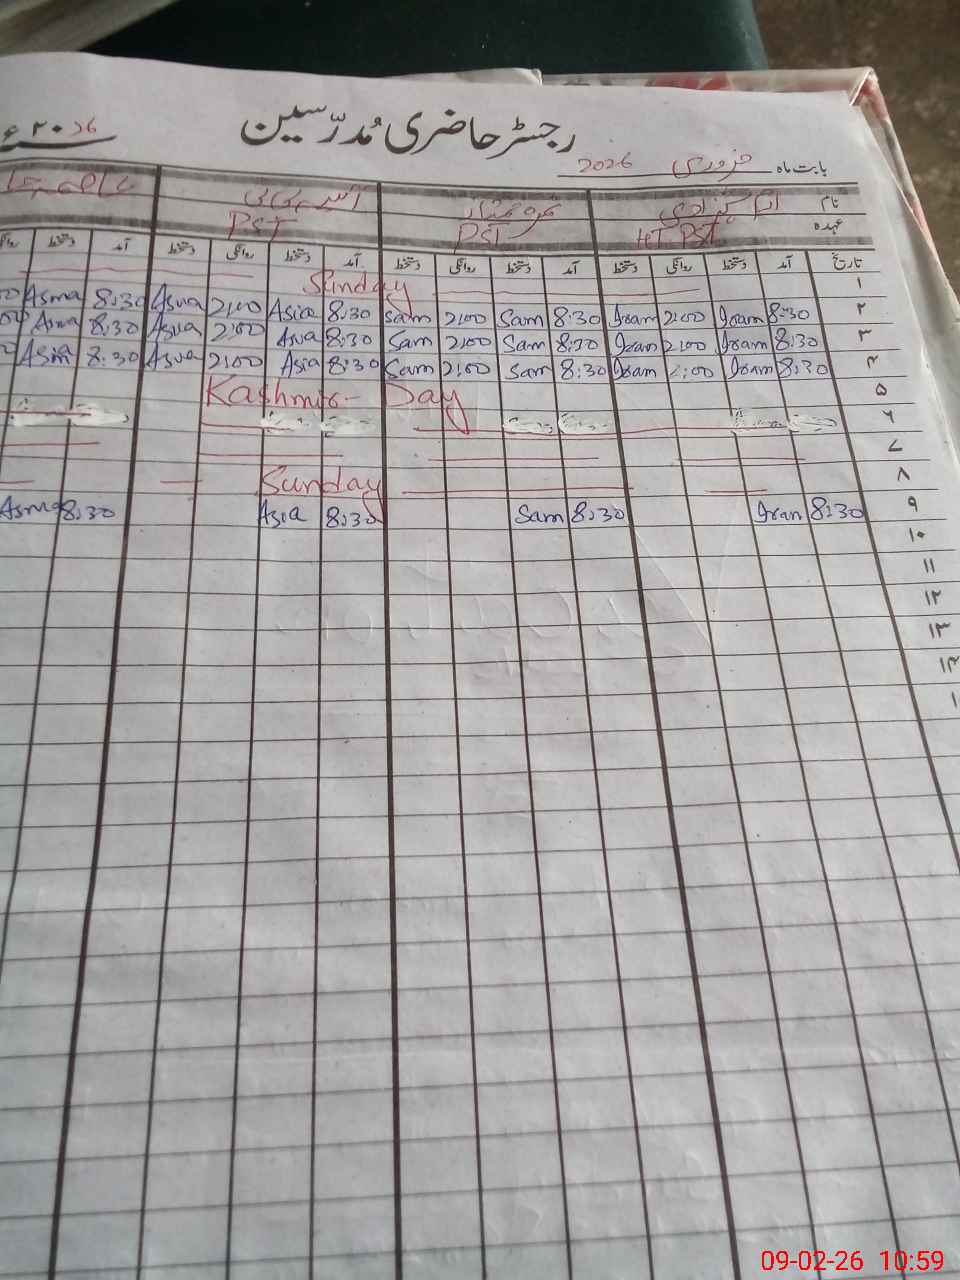 رجسٹر حاضری مُدرّسین
۲۰26ء
بابت ماہ فروری 2026
نام
عہدہ HT PST PST PST
تاریخ آمد دستخط روانگی دستخط آمد دستخط روانگی دستخط آمد دستخط روانگی دستخط آمد دستخط
۱ Sunday
۲ 8:30 Iram 2:00 Iram 8:30 Sam 2:00 Sam 8:30 Asia 2:00 Asia 8:30 Asma
۳ 8:30 Iram 2:00 Iram 8:30 Sam 2:00 Sam 8:30 Asia 2:00 Asia 8:30 Asma
۴ 8:30 Iram 2:00 Iram 8:30 Sam 2:00 Sam 8:30 Asia 2:00 Asia 8:30 Asma
۵ Kashmir Day
۶
۷
۸ Sunday
۹ 8:30 Iram 8:30 Sam 8:30 Asia 8:30 Asma
۱۰
۱۱
۱۲
۱۳
۱۴
09-02-26 10:59